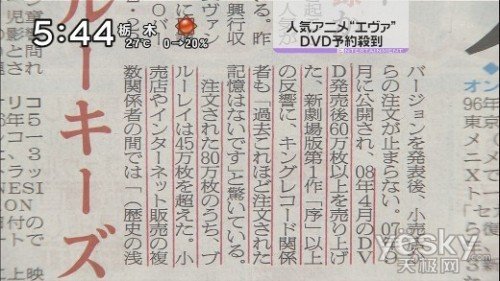 5:44 栃木
27℃ 0→20%
人気アニメ“エヴァ”
DVD予約殺到
ENTERTAINMENT
バージョンを発表後、小売店か
らの注文が止まらない。07年9
月に公開され、08年4月のDV
D発売後60万枚以上を売り上げ
た、新劇場版第1作「序」以上
の反響に、キングレコード関係
者も「過去これほど注文された
記憶はないです」と驚いている。
注文された80万枚のうち、ブ
ルーレイは45万枚を超えた。小
売店やインターネット販売の複
数関係者の間では「(歴史の浅
る。昨
興行収
ヴァン
ルーキーズ
yesky
天极网